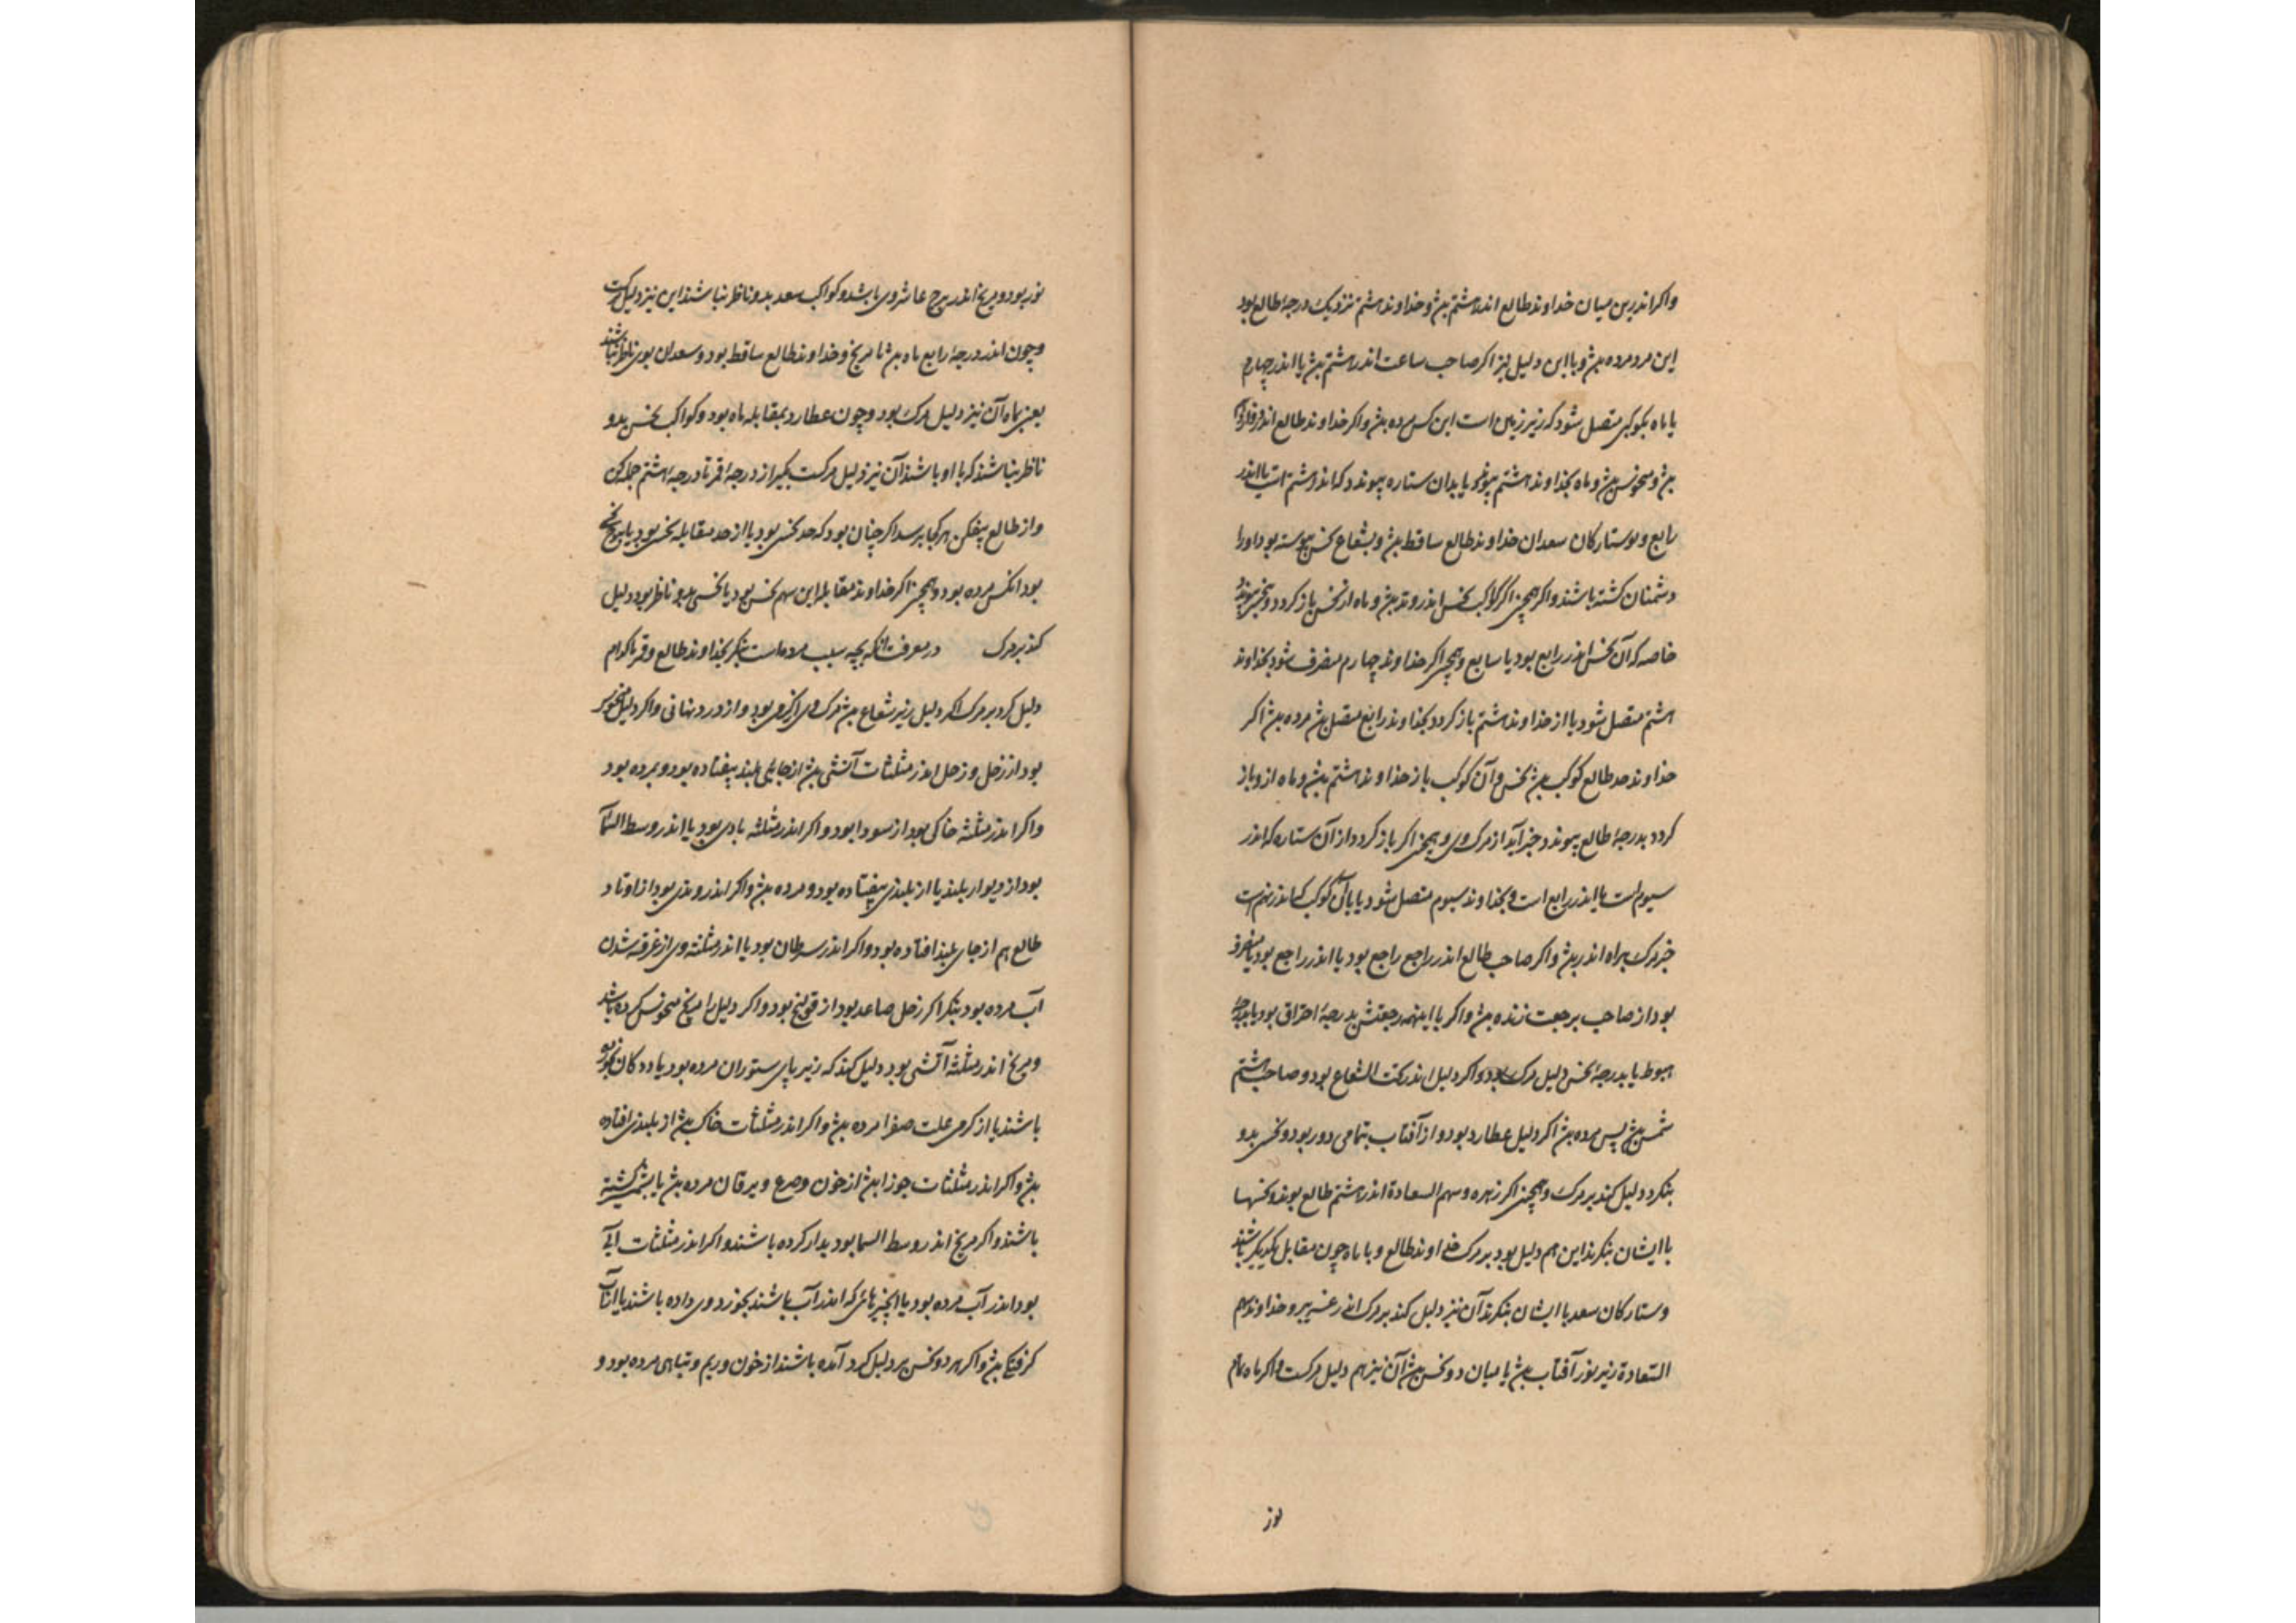 واکر اندرین میان خداوند طالع اندر هشتم بود و خداوند هشتم نزدیک درجهٔ طالع بود
این مرد مرده بود و با این دلیل نیز اکر صاحب ساعت اندر هشتم بود یا اندر چهارم
یا ماه بکوکبی متصل شود که زیر زمین است این کس مرده بود واکر خداوند طالع اندر
بود و منحوس بود و ماه بخداوند هشتم پیوندد یا بدان ستاره پیوندد که اندر هشتم است یا اندر
رابع و ستارکان سعد از خداوند طالع ساقط بود و بشعاع نحس پیوسته بود اورا
دشمنان کشته باشند واکر همچنین اکر کوکب نحس اندر وتد بود و ماه از نحس باز کردد و
خاصه که آن نحس اندر رابع بود یا سابع و همچنین اکر خداوند چهارم منصرف شود بخداوند
هشتم متصل شود یا از خداوند هشتم باز کردد بخداوند رابع متصل بود مرده بود اکر
خداوند حد طالع کوکب بود نحس و آن کوکب باز خداوند هشتم بود و ماه ازو باز
کردد بدرجهٔ طالع پیوندد خبر آید از مرک وی و همچنین اکر باز کردد از آن ستاره که اندر
سیوم است یا اندر رابع است و بخداوند سیوم متصل شود یا با آن کوکب که اندر نهم است
خبر مرک براه اندر بود واکر صاحب طالع اندر راجع راجع بود یا اندر راجع بود یا
بود از صاحب برجعت زنده بود واکر با اینهمه رجعتش بدرجهٔ احتراق بود یا بدرجهٔ
هبوط یا بدرجهٔ نحس دلیل مرک بود واکر دلیل اندر تحت الشعاع بود و صاحب هشتم
شمس بود پس مرده بود اکر دلیل عطارد بود و از آفتاب بتمامی دور بود و نحس بدو
بنکرد دلیل کند بر مرک و همچنین اکر زهره و سهم السعادة اندر هشتم طالع بوند و نحسها
با ایشان بنکرند این هم دلیل بود بر مرک خداوند طالع و با ماه چون مقابل یکدیکر باشند
و ستارکان سعد با ایشان ننکرند آن نیز دلیل کند بر مرک و خداوند سهم
السعادة زیر نور آفتاب بود یا میان دو نحس بود آن نیز هم دلیل مرکست واکر ماه تمام
نور
نور بود و مریخ اندر برج عاشر وی باشد و کواکب سعد بدو ناظر نباشند این نیز دلیل مرکست
و چون اندر درجهٔ رابع ماه بود با مریخ و خداوند طالع ساقط بود و سعدان بوی ناظر نباشند
یعنی بماه آن نیز دلیل مرک بود و چون عطارد بمقابله ماه بود و کواکب نحس بدو
ناظر نباشند که با او باشند آن نیز دلیل مرکست بکیر از درجهٔ قمر تا درجهٔ هشتم جمله کن
و از طالع بیفکن هر کجا برسد اکر چنان بود که حد نحس بود یا از حد مقابله نحس بود یا
بود آنکس مرده بود و همچنین اکر خداوند مقابله این سهم نحس بود یا نحسی بدو ناظر بود دلیل
کند بر مرک در معرفت آنکه بچه سبب مرده است بنکر بخداوند طالع و قمر تا کدام
دلیل کرد بر مرک اکر دلیل زیر شعاع بود مرک وی از کرمی بود و از درد نهانی واکر دلیل منحوس
بود از زحل و زحل اندر مثلثات آتشی بود از جایی بلند بیفتاده بود و مرده بود
واکر اندر مثلثه خاکی بود از سودا بود واکر اندر مثلثه بادی بود یا اندر وسط السما
بود از دیوار بلند یا از بلندی بیفتاده بود و مرده بود واکر اندر وتدی بود از اوتاد
طالع هم از جای بلند افتاده بود واکر اندر سرطان بود یا اندر مثلثه وی از غرقه شدن
آب مرده بود بنکر اکر زحل صاعد بود از قولنج بود واکر دلیل را مریخ منحوس کرده باشد
و مریخ اندر مثلثه آتشی بود دلیل کند که زیر پای ستوران مرده بود یا ددکان
باشند یا از کرمی علت صفرا مرده بود واکر اندر مثلثات خاکی بود از بلندی افتاده
بود واکر اندر مثلثات جوزا بود از خون و صرع و یرقان مرده بود یا بشمشیر کشته
باشند واکر مریخ اندر وسط السما بود بدار کرده باشند واکر اندر مثلثات آبی
بود اندر آب مرده بود یا چیزهائی که اندر آب باشند بخورد وی داده باشند یا
کرفتکی بود واکر هر دو نحس بر دلیل کرد آمده باشند از خون و ریم و تباهی مرده بود و